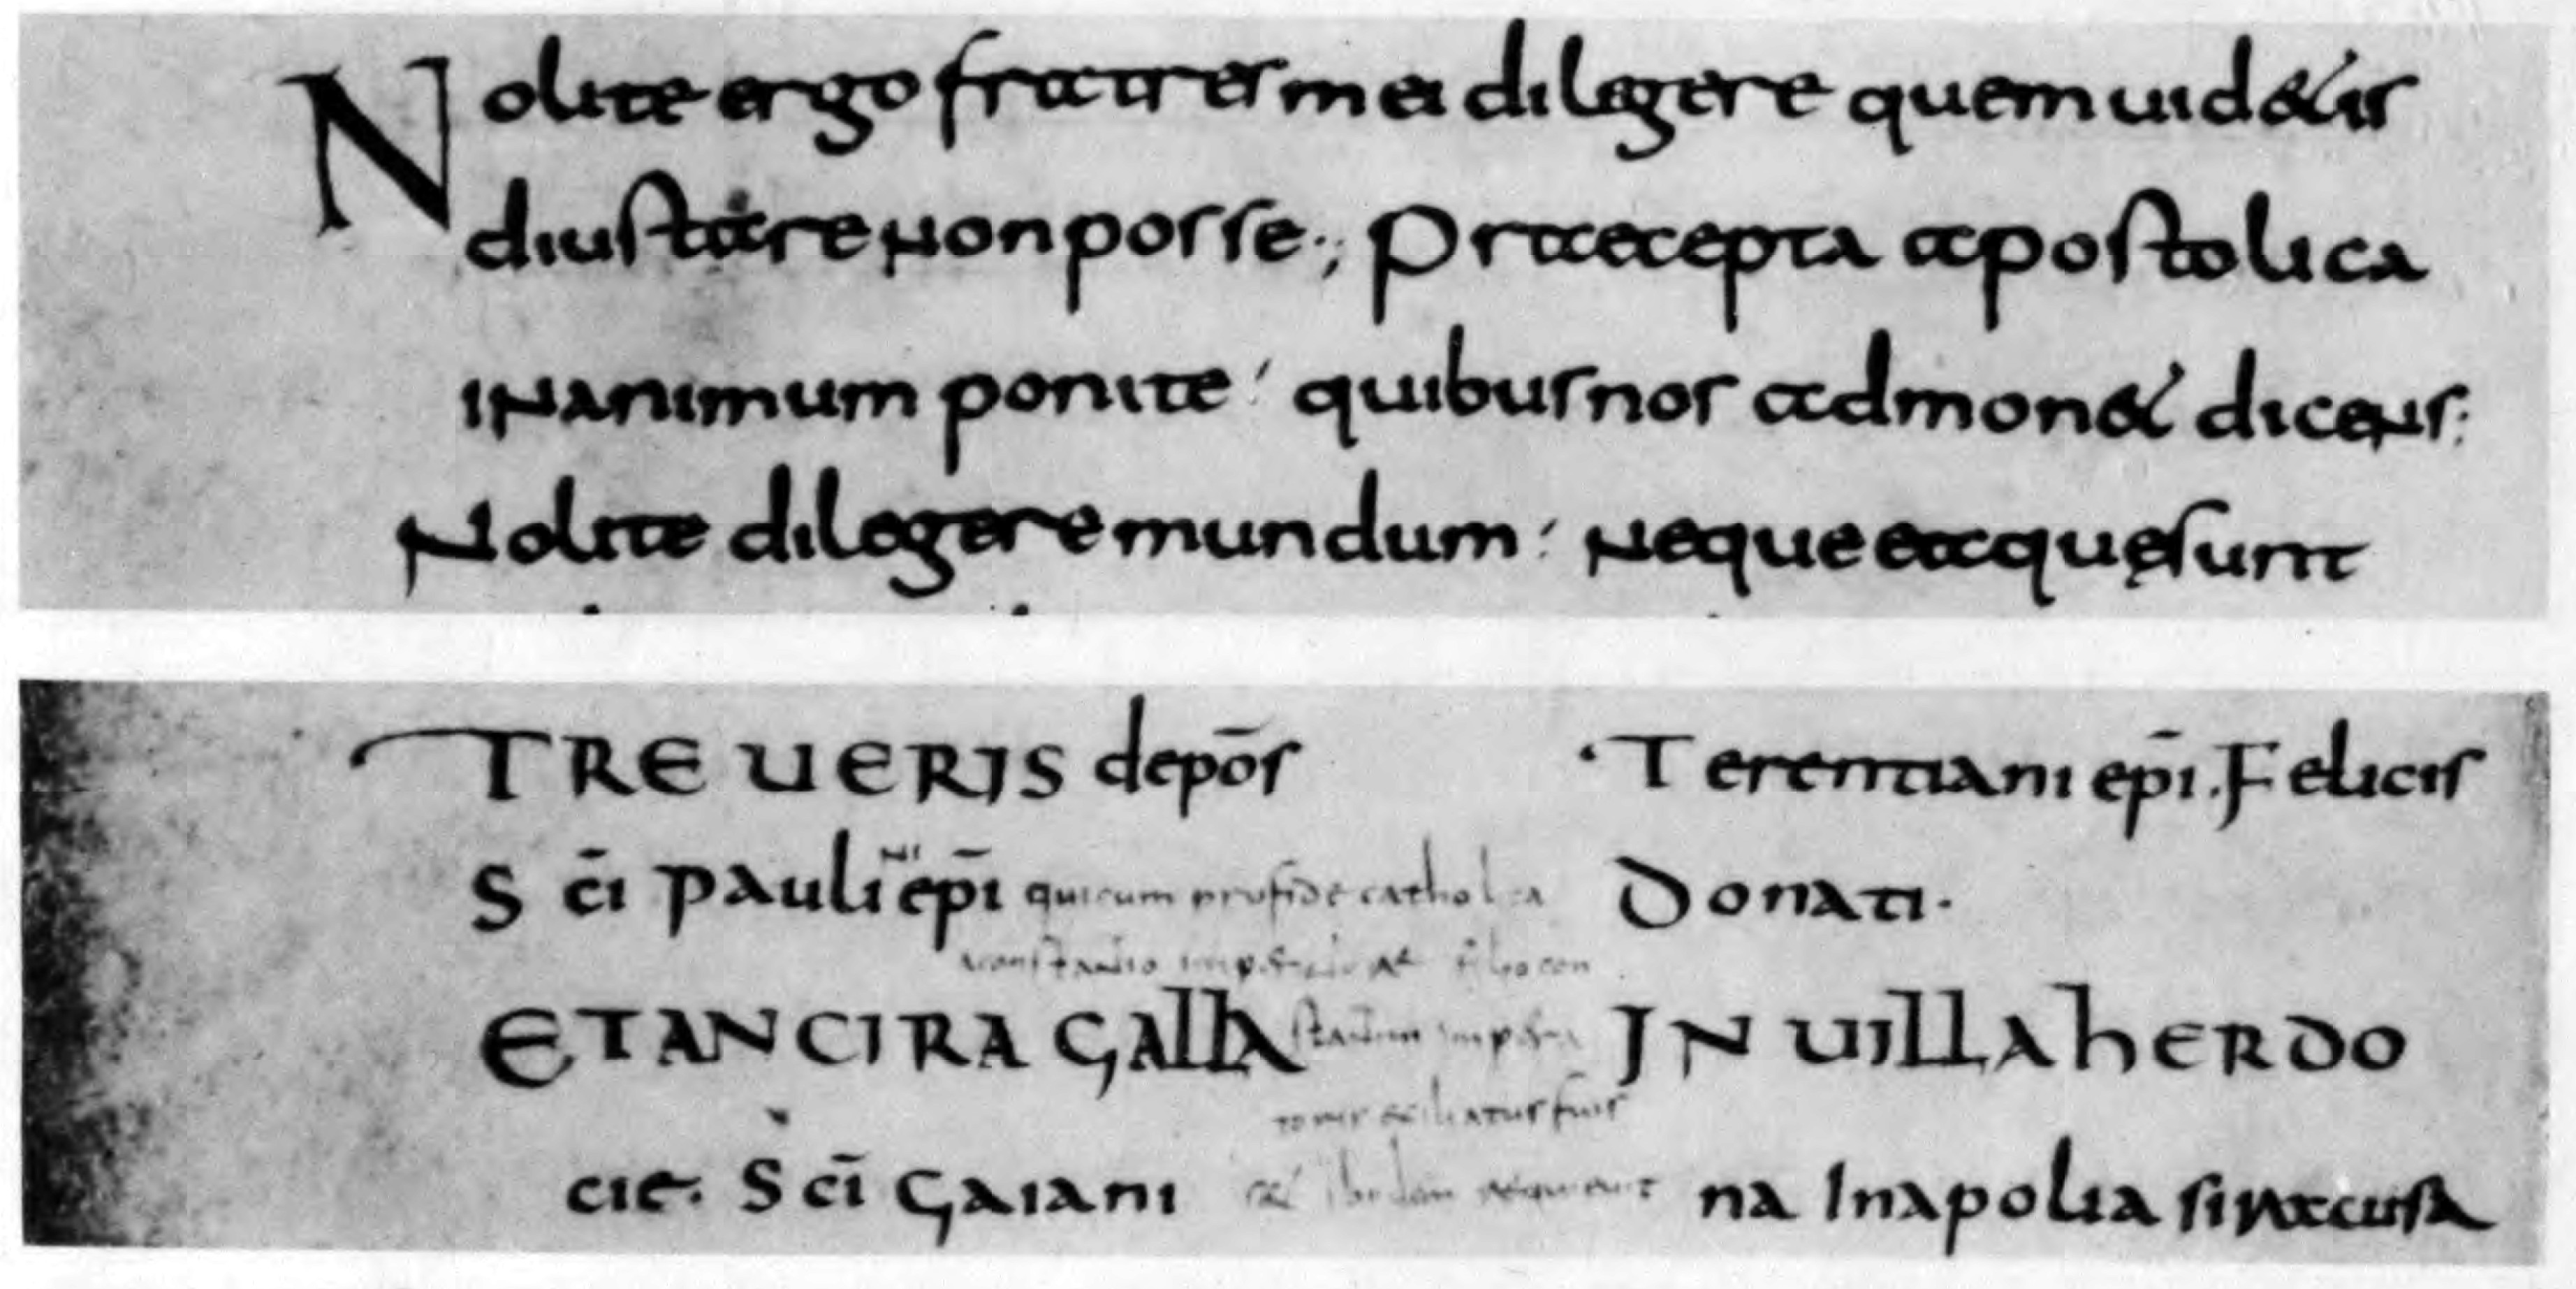 Nolite ergo fratres mei diligere quem uidetis
diu stare non posse·,; Praecepta apostolica
in animum ponite quibus nos admonet dicens:
Nolite diligere mundum neque ea quę sunt
TREUERIS depōs
Sc̄i pauliⁿⁱ ep̄i qui cum pro fide catholica
constantio imp filio con
ET ANCIRA GALLA
cie. Sc̄i Gaiani
Terentiani ep̄i. Felicis
Donati.
IN UILLA hERDO
na In apolia